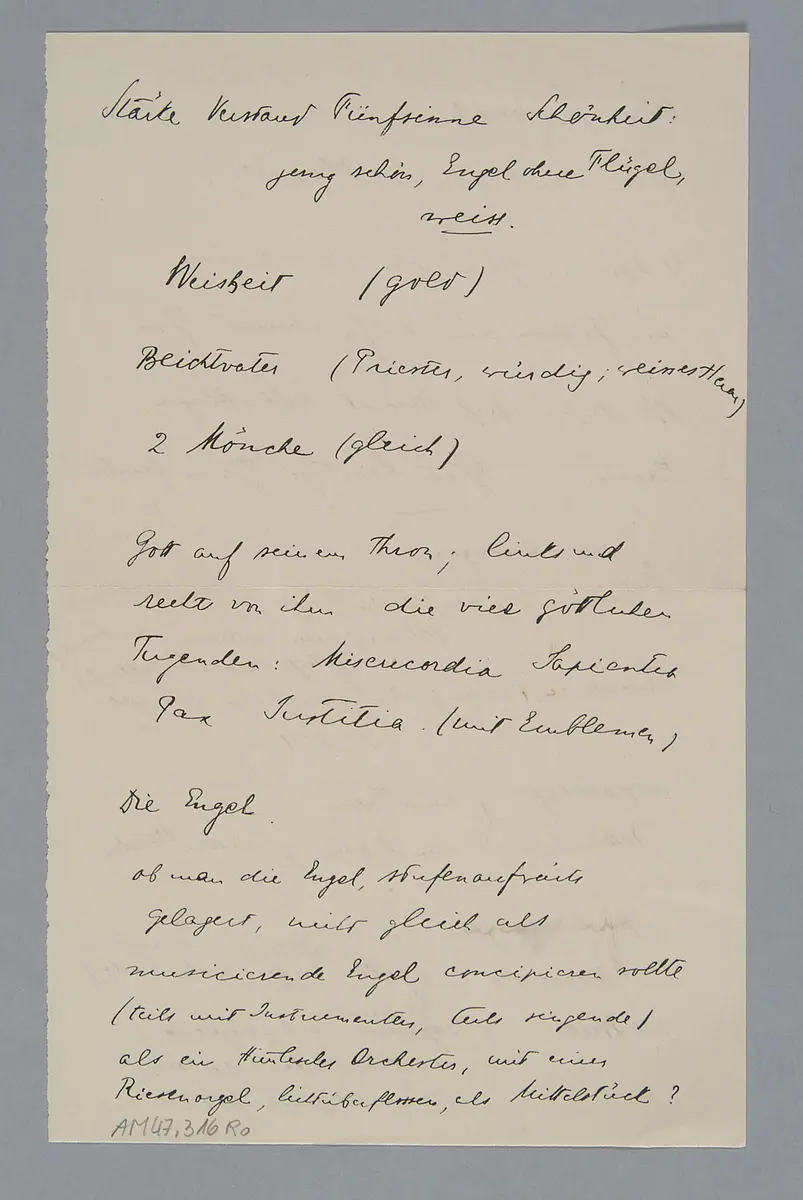 Stärke Verstand Fünfsinne Schönheit:
jung schön, Engel ohne Flügel,
weiss.
Weisheit (gold)
Beichtvater (Priester, würdig; weisses Haar)
2 Mönche (gleich)
Gott auf seinem Thron; links und
recht von ihm die vier göttlichen
Tugenden: Misericordia Sapientia
Pax Iustitia. (mit Emblemen)
Die Engel.
ob man die Engel, stufenaufwärts
gelagert, nicht gleich als
musicierende Engel concipieren sollte
(teils mit Instrumenten, teils singende)
als ein Himlisches Orchester, mit einer
Riesenorgel, lichtüberflossen, als Mittelstück?
AM47.316Ro